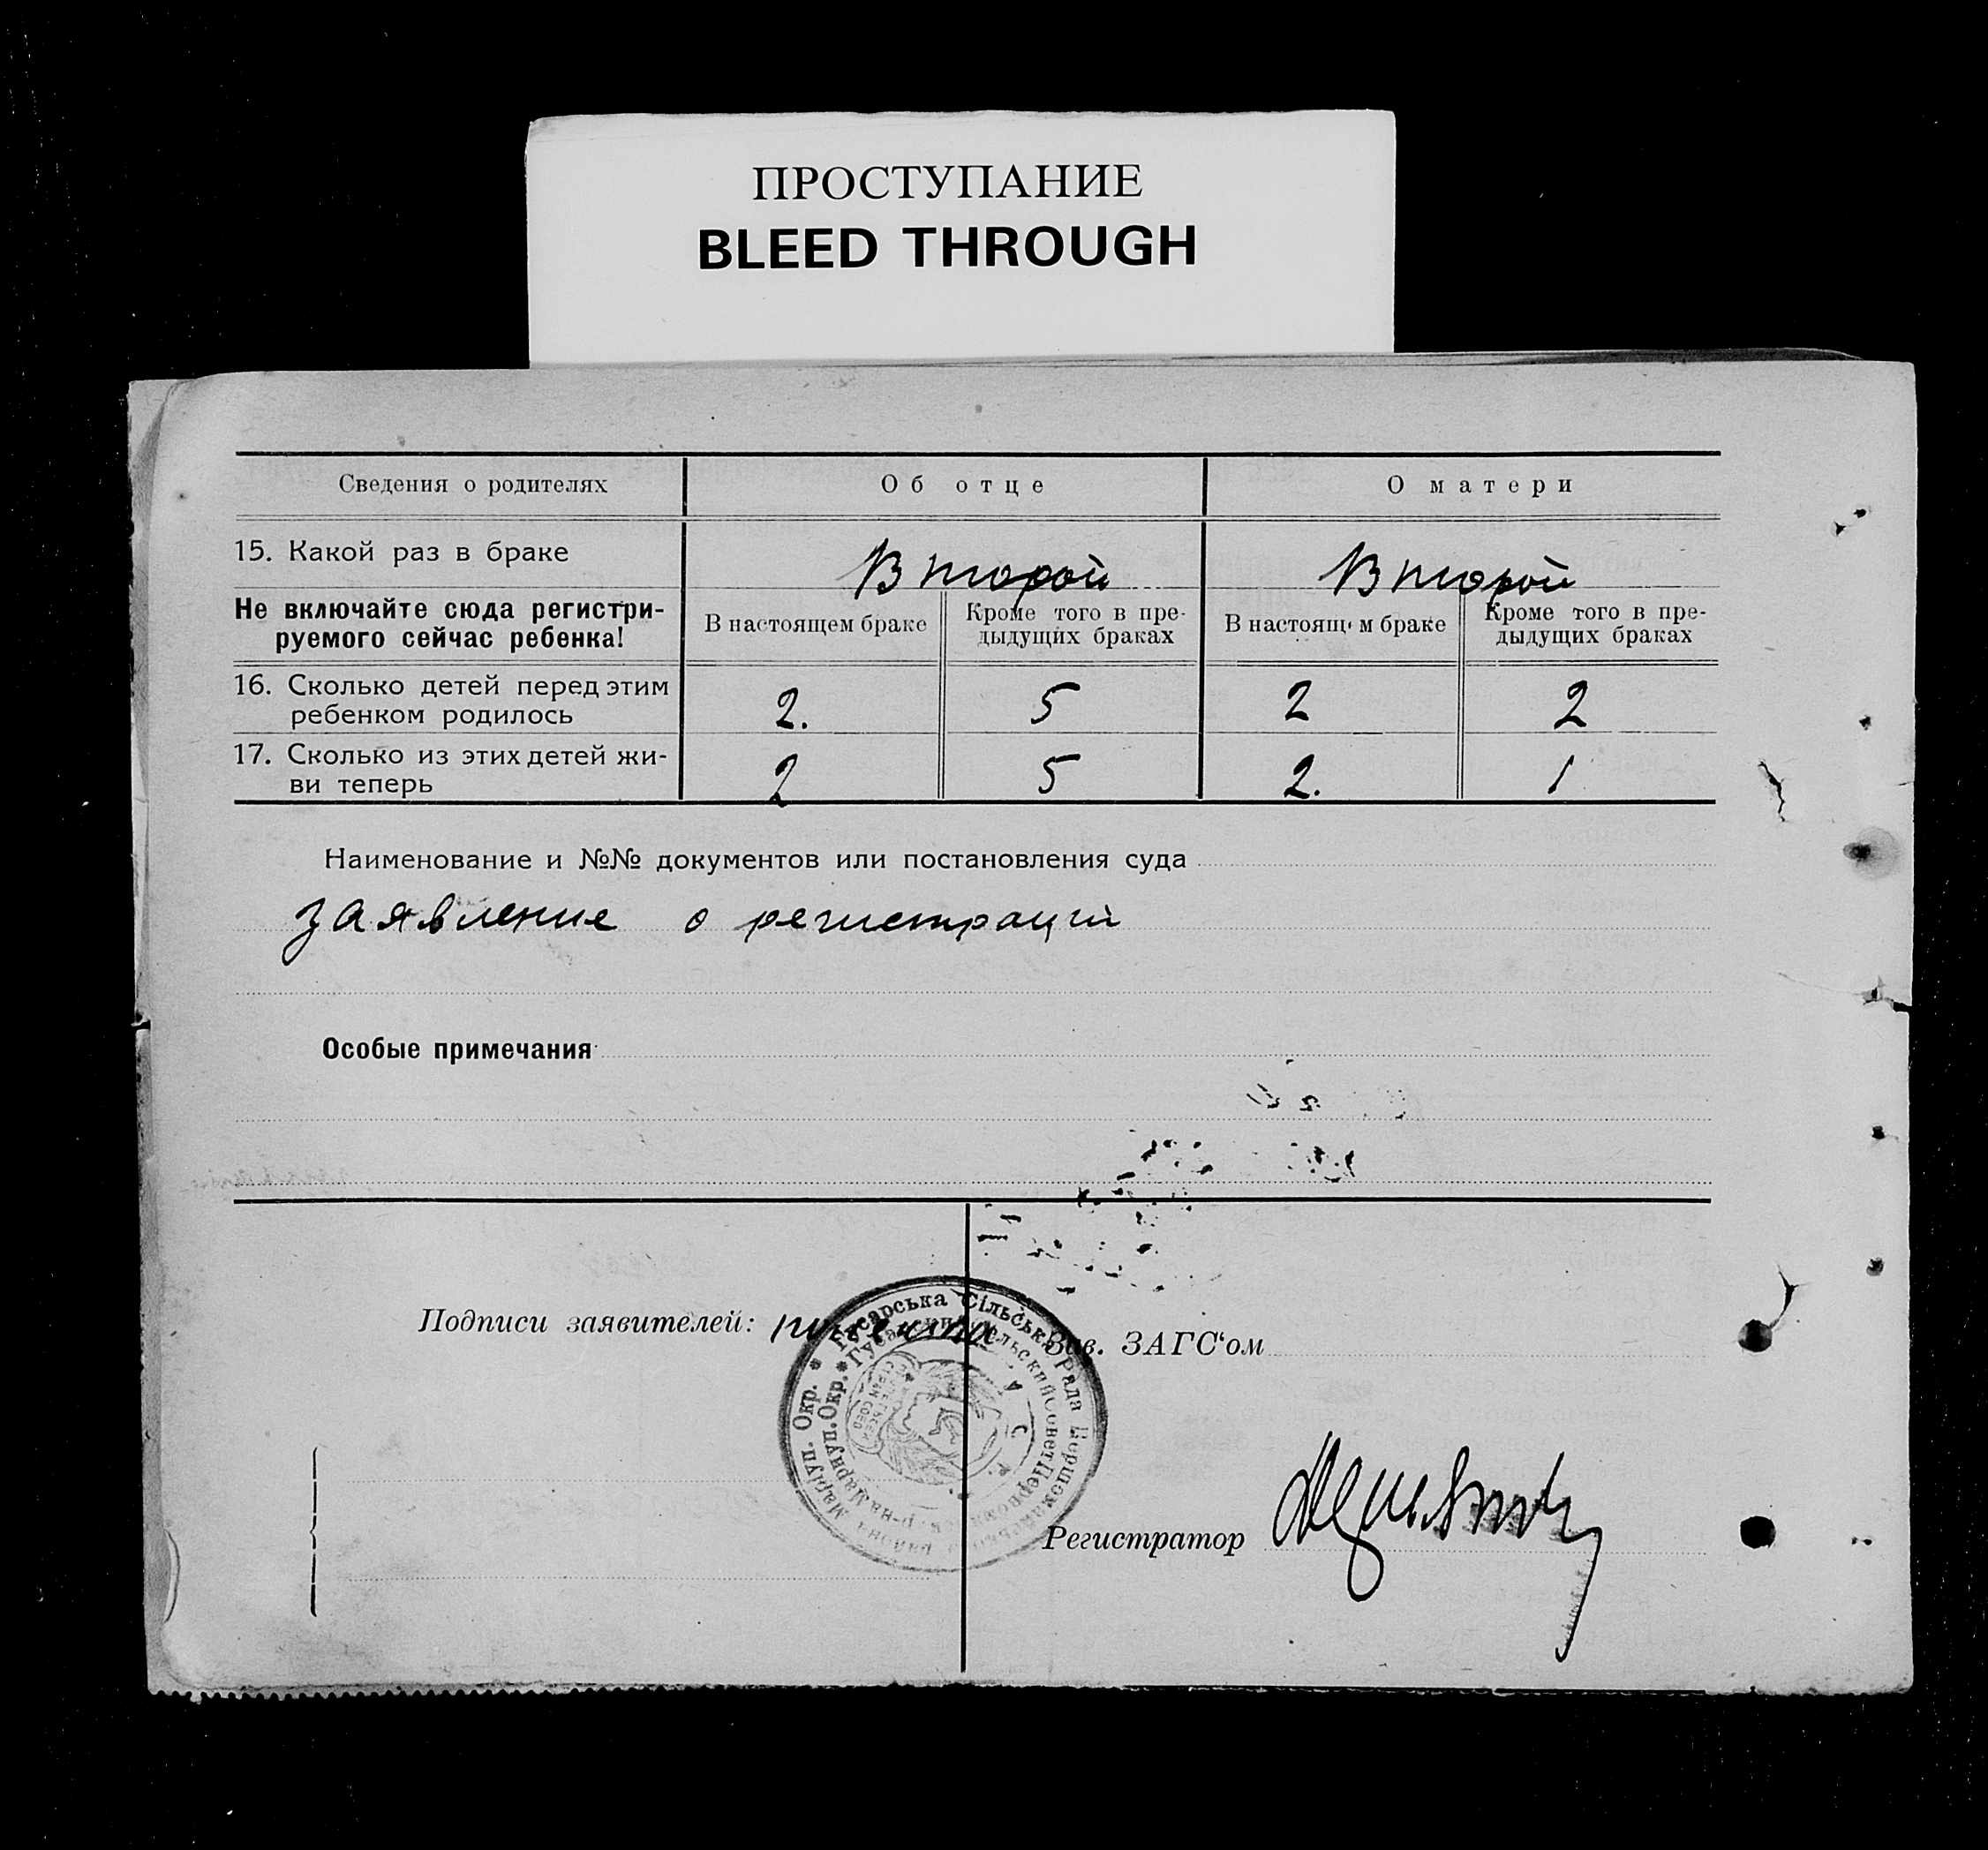 ПРОСТУПАНИЕ
BLEED THROUGH
Сведения о родителях
Об отце
О матери
15. Какой раз в браке
Второй
Второй
Не включайте сюда регистри-
руемого сейчас ребенка!
В настоящем браке
Кроме того в пре-
дыдущих браках
В настоящ м браке
Кроме того в пре-
дыдущих браках
16. Сколько детей перед этим
ребенком родилось
2.
5
2
2
17. Сколько из этих детей жи-
ви теперь
2
5
2.
1
Наименование и №№ документов или постановления суда
заявление о регистраций
Особые примечания
Подписи заявителей:
Зав. ЗАГС‘ом
Регистратор
Сільська Рада Першомайського району Маріуп. Окр.
Сельский Совет Первом р-на Мариуп. Окр.